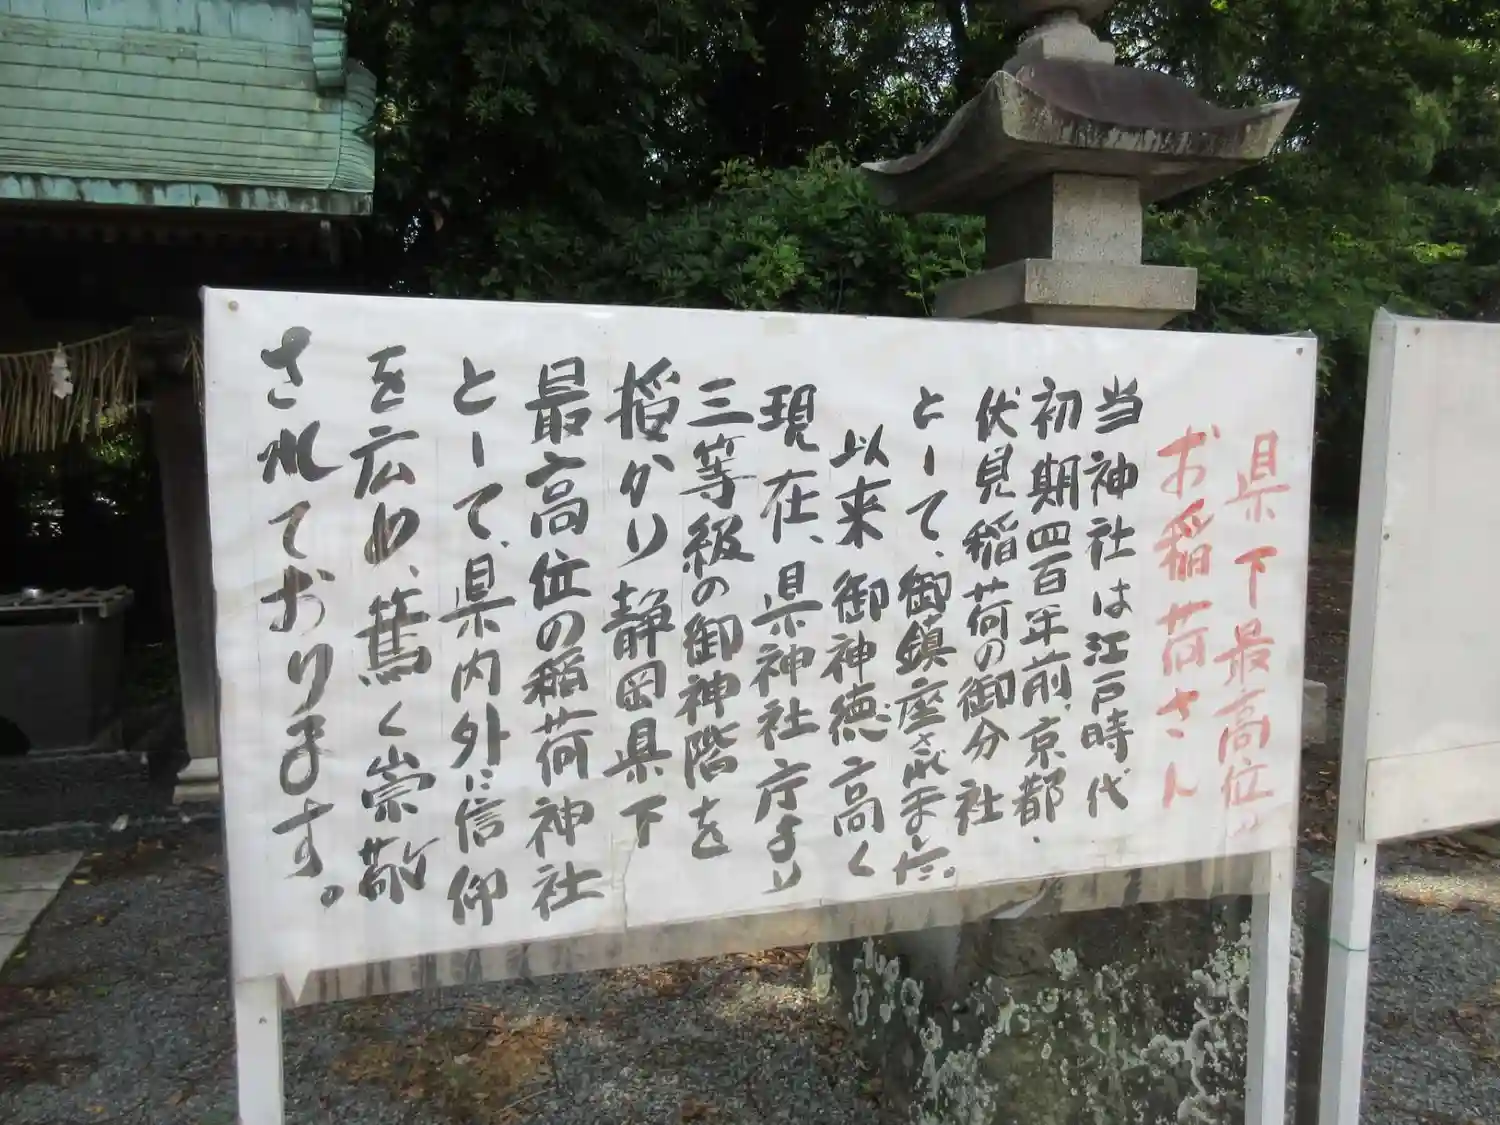 県下最高位の
お稲荷さん
当神社は江戸時代
初期四百年前、京都・
伏見稲荷の御分社
として、御鎮座されました。
以来御神徳高く
現在、県神社庁より
三等級の御神階を
授かり静岡県下
最高位の稲荷神社
として、県内外に信仰
を広め、篤く崇敬
されております。